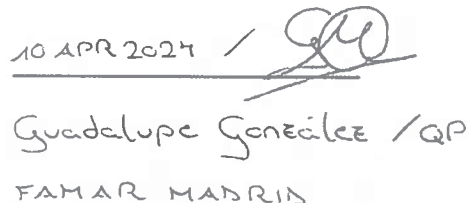 10 APR 2024 /
Guadalupe González / QP
FAMAR MADRID